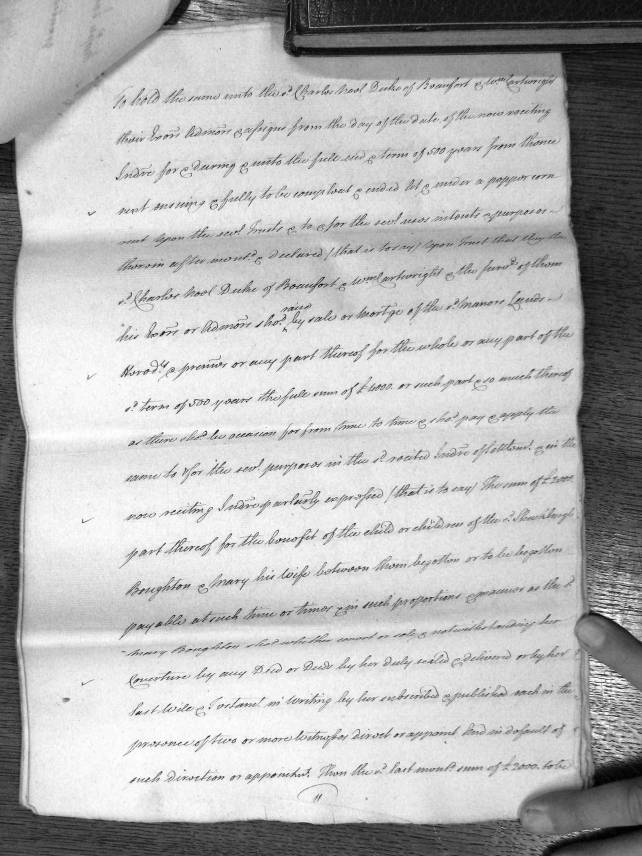 To hold the same unto the sd. Charles Noel Duke of Beaufort & Wm. Cartwright
their Exors Admors & assigns from the day of the date of the now reciting
Indre for & during & unto the full end & term of 500 years from thence
next ensuing & fully to be compleat & ended At & under a pepper corn
rent Upon the sevl. Trusts & to & for the sevl. uses intents & purposes
therein after mentd. & declared (that is to say) Upon Trust that they the
sd. Charles Noel Duke of Beaufort & Wm. Cartwright & the survr. of them
his Exors or Admors shod. raise by sale or mortge of the sd. manors Lands
Heredts. & premes or any part thereof for the whole or any part of the
sd. term of 500 years the full sum of £4000. or such part & so much thereof
as there shod. be occasion for from time to time & shod. pay & apply the
same to & for the sevl. purposes in the sd. recited Indre of Settlemt. & in the
now reciting Indre particularly expressed (that is to say) The sum of £2000
part thereof for the benefit of the child or children of the sd. Shuckburgh
Boughton & Mary his Wife between them begotten or to be begotten
payable at such time or times & in such proportions & manner as the sd.
Mary Boughton shod. whether covert or sole & notwithstanding her
Coverture by any Deed or Deeds by her duly sealed & delivered or by her
last Will & Testamt. in Writing by her subscribed & published each in the
presence of two or more Witnesses direct or appoint And in default of
such direction or appointmt. Then the sd. last mentd. sum of £2000. to be
11